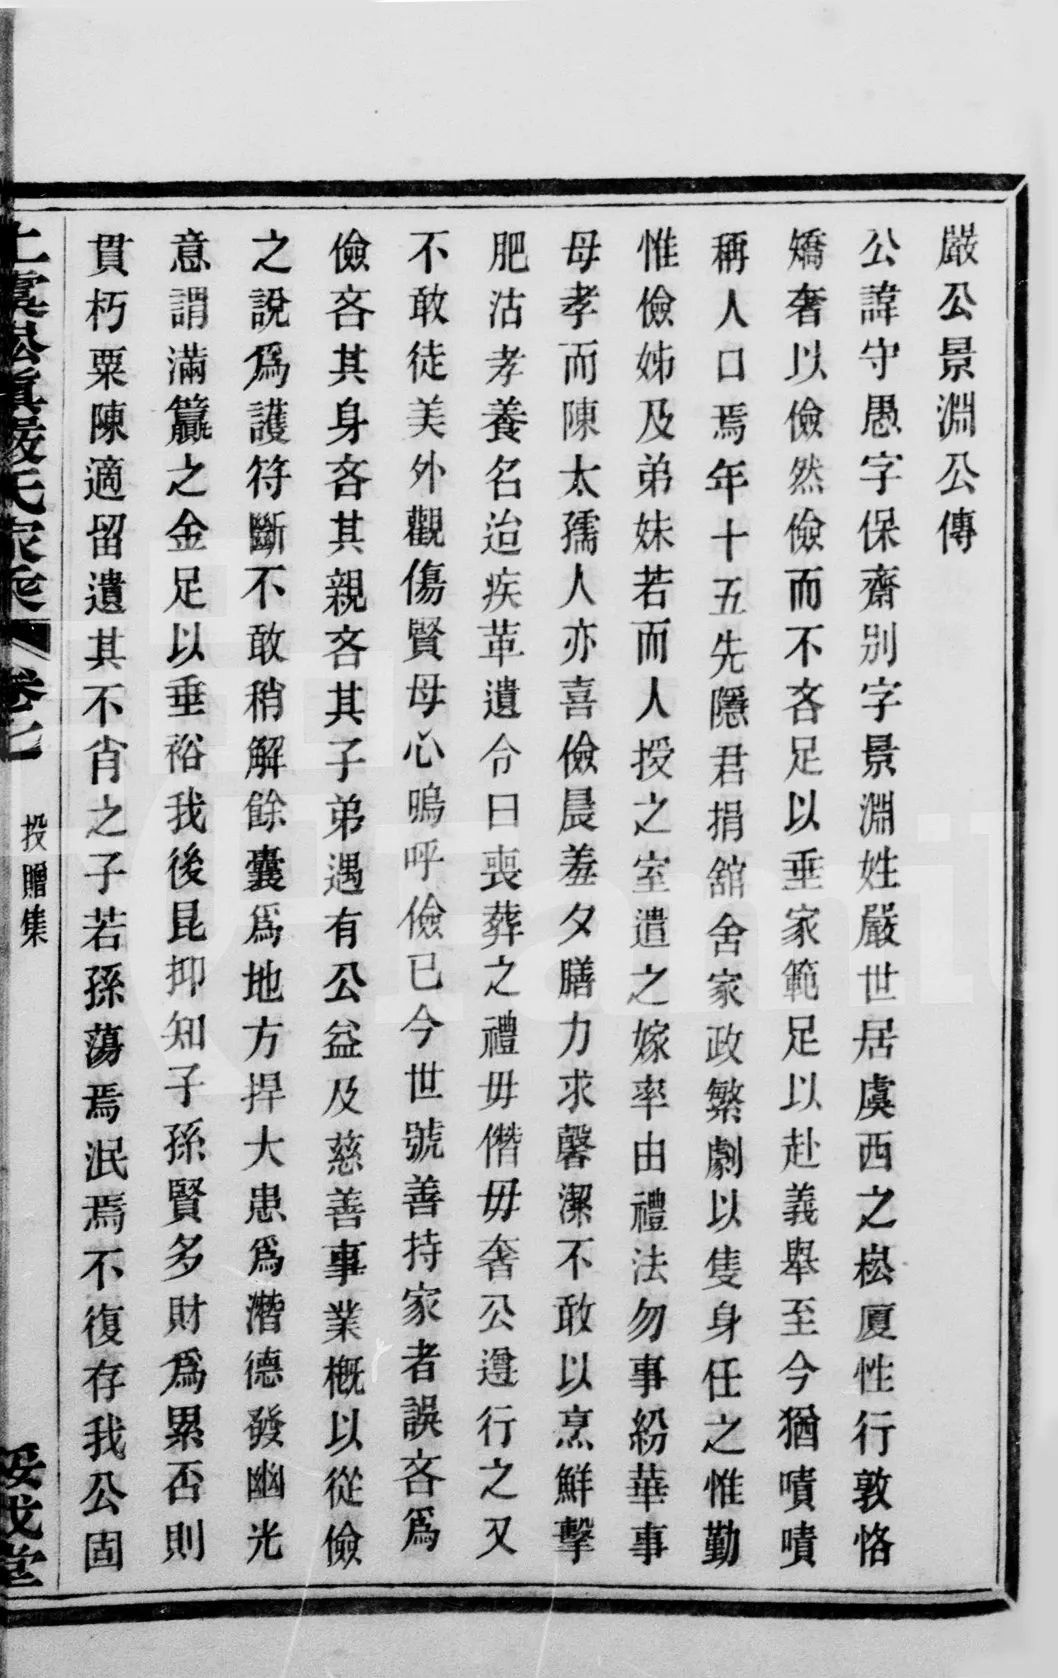 嚴公景淵公傳
公諱守愚字保齋別字景淵姓嚴世居虞西之崧厦性行敦恪
矯奢以儉然儉而不吝足以垂家範足以赴義舉至今猶嘖嘖
稱人口焉年十五先隱君捐舘舍家政繁劇以隻身任之惟勤
惟儉姊及弟妹若而人授之室遣之嫁率由禮法勿事紛華事
母孝而陳太孺人亦喜儉晨羞夕膳力求馨潔不敢以烹鮮擊
肥沽孝養名迨疾革遺令曰喪葬之禮毋僭毋奢公遵行之又
不敢徒美外觀傷賢母心嗚呼儉已今世號善持家者誤吝爲
儉吝其身吝其親吝其子弟遇有公益及慈善事業概以從儉
之說爲護符斷不敢稍解餘囊爲地方捍大患爲潛德發幽光
意謂滿籯之金足以垂裕我後昆抑知子孫賢多財爲累否則
貫朽粟陳適留遺其不肖之子若孫蕩焉泯焉不復存我公固
上虞崧鎮嚴氏家乘 卷七 投贈集